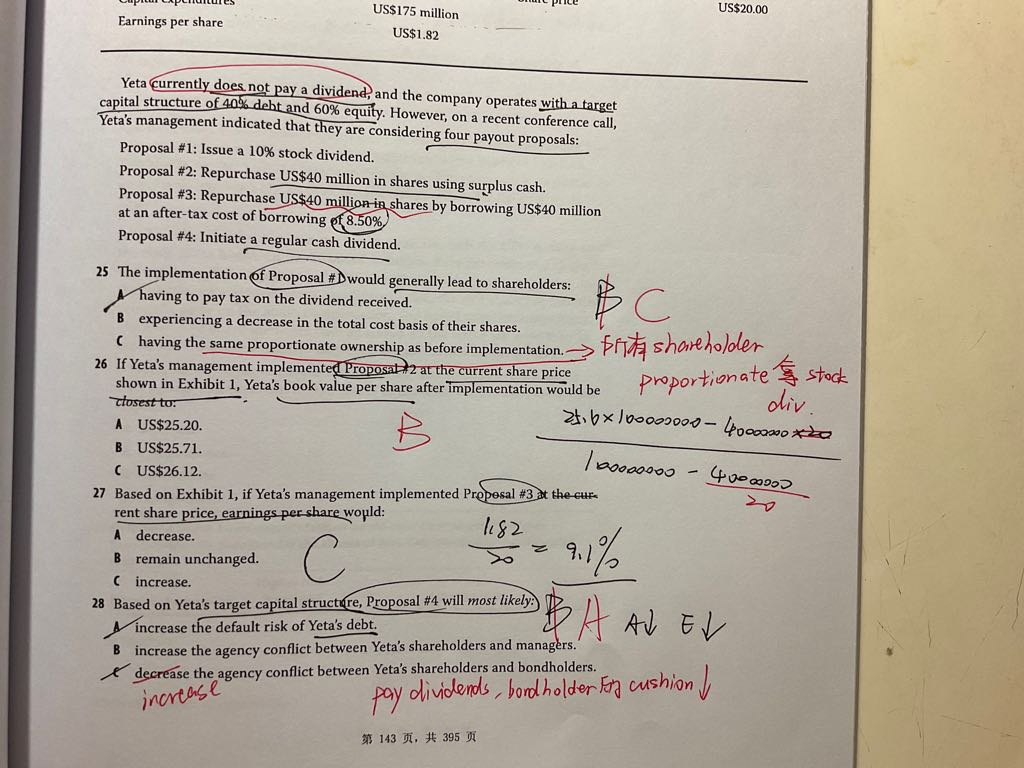 Capital expenditures US$175 million Share price US$20.00
Earnings per share US$1.82
Yeta currently does not pay a dividend, and the company operates with a target
capital structure of 40% debt and 60% equity. However, on a recent conference call,
Yeta's management indicated that they are considering four payout proposals:
Proposal #1: Issue a 10% stock dividend.
Proposal #2: Repurchase US$40 million in shares using surplus cash.
Proposal #3: Repurchase US$40 million in shares by borrowing US$40 million
at an after-tax cost of borrowing of 8.50%.
Proposal #4: Initiate a regular cash dividend.
25 The implementation of Proposal #1 would generally lead to shareholders:
A having to pay tax on the dividend received.
B experiencing a decrease in the total cost basis of their shares.
C having the same proportionate ownership as before implementation.
B C
→ 所有 shareholder
proportionate 等 stock
div.
26 If Yeta's management implemented Proposal #2 at the current share price
shown in Exhibit 1, Yeta's book value per share after implementation would be
closest to:
A US$25.20.
B US$25.71.
C US$26.12.
B
27 Based on Exhibit 1, if Yeta's management implemented Proposal #3 at the cur-
rent share price, earnings per share would:
A decrease.
B remain unchanged.
C increase.
C
1.82
20
= 9.1%
28 Based on Yeta's target capital structure, Proposal #4 will most likely:
A increase the default risk of Yeta's debt.
B increase the agency conflict between Yeta's shareholders and managers.
C decrease the agency conflict between Yeta's shareholders and bondholders.
B A A↓ E↓
increase
pay dividends, bondholder 的 cushion ↓
第 143 页，共 395 页